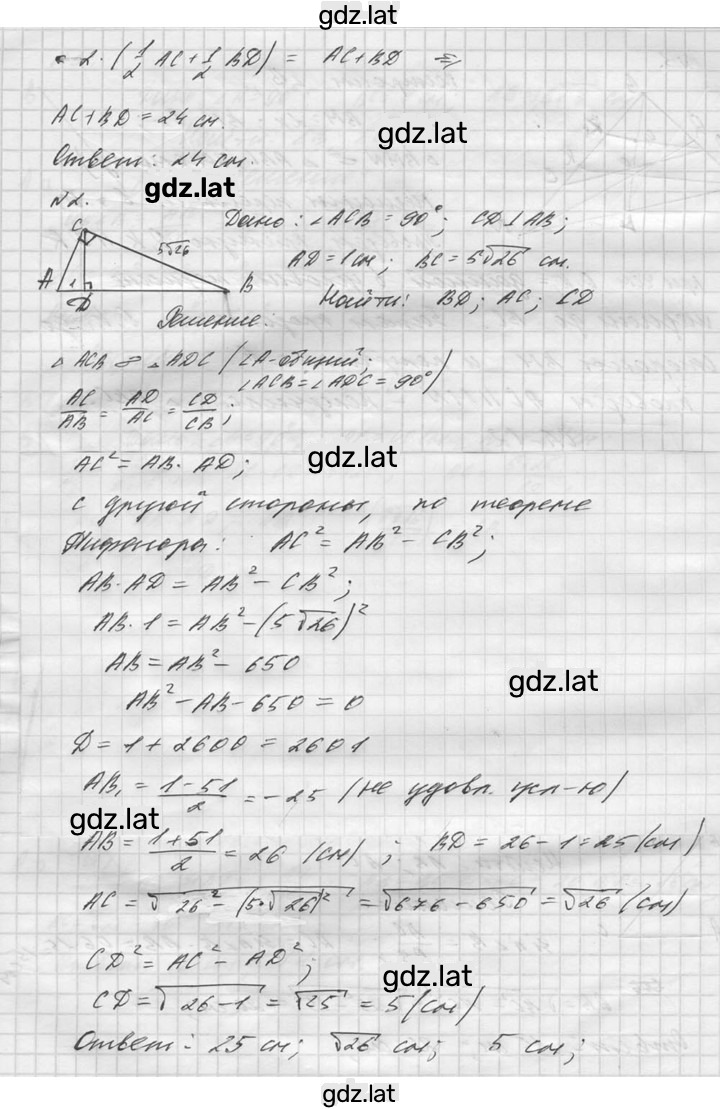 gdz.lat
= 2·(1/2 AC + 1/2 BD) = AC + BD ⇒
AC + BD = 24 см.
gdz.lat
Ответ: 24 см.
gdz.lat
№2.
C
5√26
A
1
D
B
Дано: ∠ACB = 90°; CD⊥AB;
AD = 1 см; BC = 5√26 см.
Найти: BD; AC; CD
Решение:
△ ACB ∞ △ADC (∠A-общий;
∠ACB = ∠ADC = 90°)
AC/AB = AD/AC = CD/CB;
AC² = AB · AD;
gdz.lat
с другой стороны, по теореме
Пифагора: AC² = AB² - CB²;
AB·AD = AB² - CB²;
AB·1 = AB² - (5√26)²
AB = AB² - 650
gdz.lat
AB² - AB - 650 = 0
D = 1 + 2600 = 2601
AB₁ = (1-51)/2 = -25 (не удовл. усл-ю)
gdz.lat
AB = (1+51)/2 = 26 (см); BD = 26 - 1 = 25 (см)
AC = √(26² - (5·√26)²) = √(676 - 650) = √26 (см)
CD² = AC² - AD²;
gdz.lat
CD = √(26-1) = √25 = 5 (см)
Ответ: 25 см; √26 см; 5 см;
gdz.lat